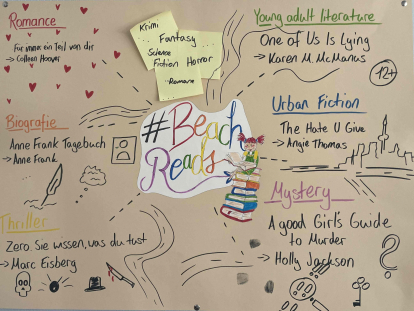 Romance
Für immer ein Teil von dir
→ Colleen Hoover
Krimi
Fantasy
Science
Fiction
Horror
Romane
Young adult literature
One of Us Is Lying
→ Karen M. McManus
12+
Biografie
Anne Frank Tagebuch
→ Anne Frank
#Beach
Reads
Urban Fiction
The Hate U Give
→ Angie Thomas
Thriller
Zero Sie wissen, was du tust
→ Marc Elsberg
Mystery
A good Girl's Guide
to Murder
→ Holly Jackson